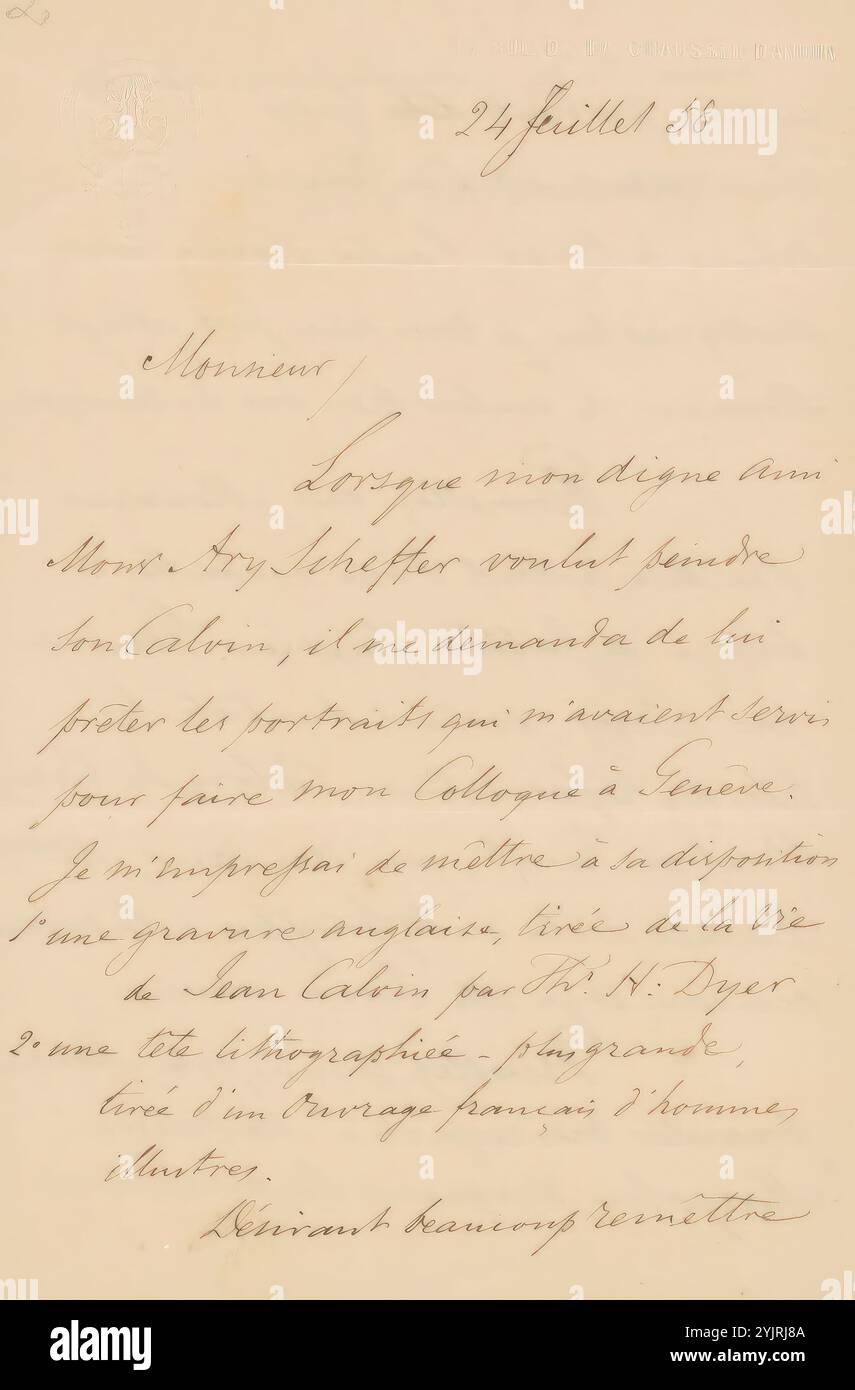 24 Juillet 58
Monsieur
Lorsque mon digne ami
Monsr Ary Scheffer voulut peindre
son Calvin, il me demanda de lui
prêter les portraits qui m'avaient servis
pour faire mon Colloque à Genêve.
Je m'empressai de mêttre à sa disposition
1° une gravure anglaise, tirée de la Vie
de Jean Calvin par Ths. H: Dyer
2° une tête lithographiée - plus grande,
tirée d'un Ouvrage français d'hommes
illustres.
Désirant beaucoup remêttre
alamy
Image ID: 2YJRJ8A
www.alamy.com